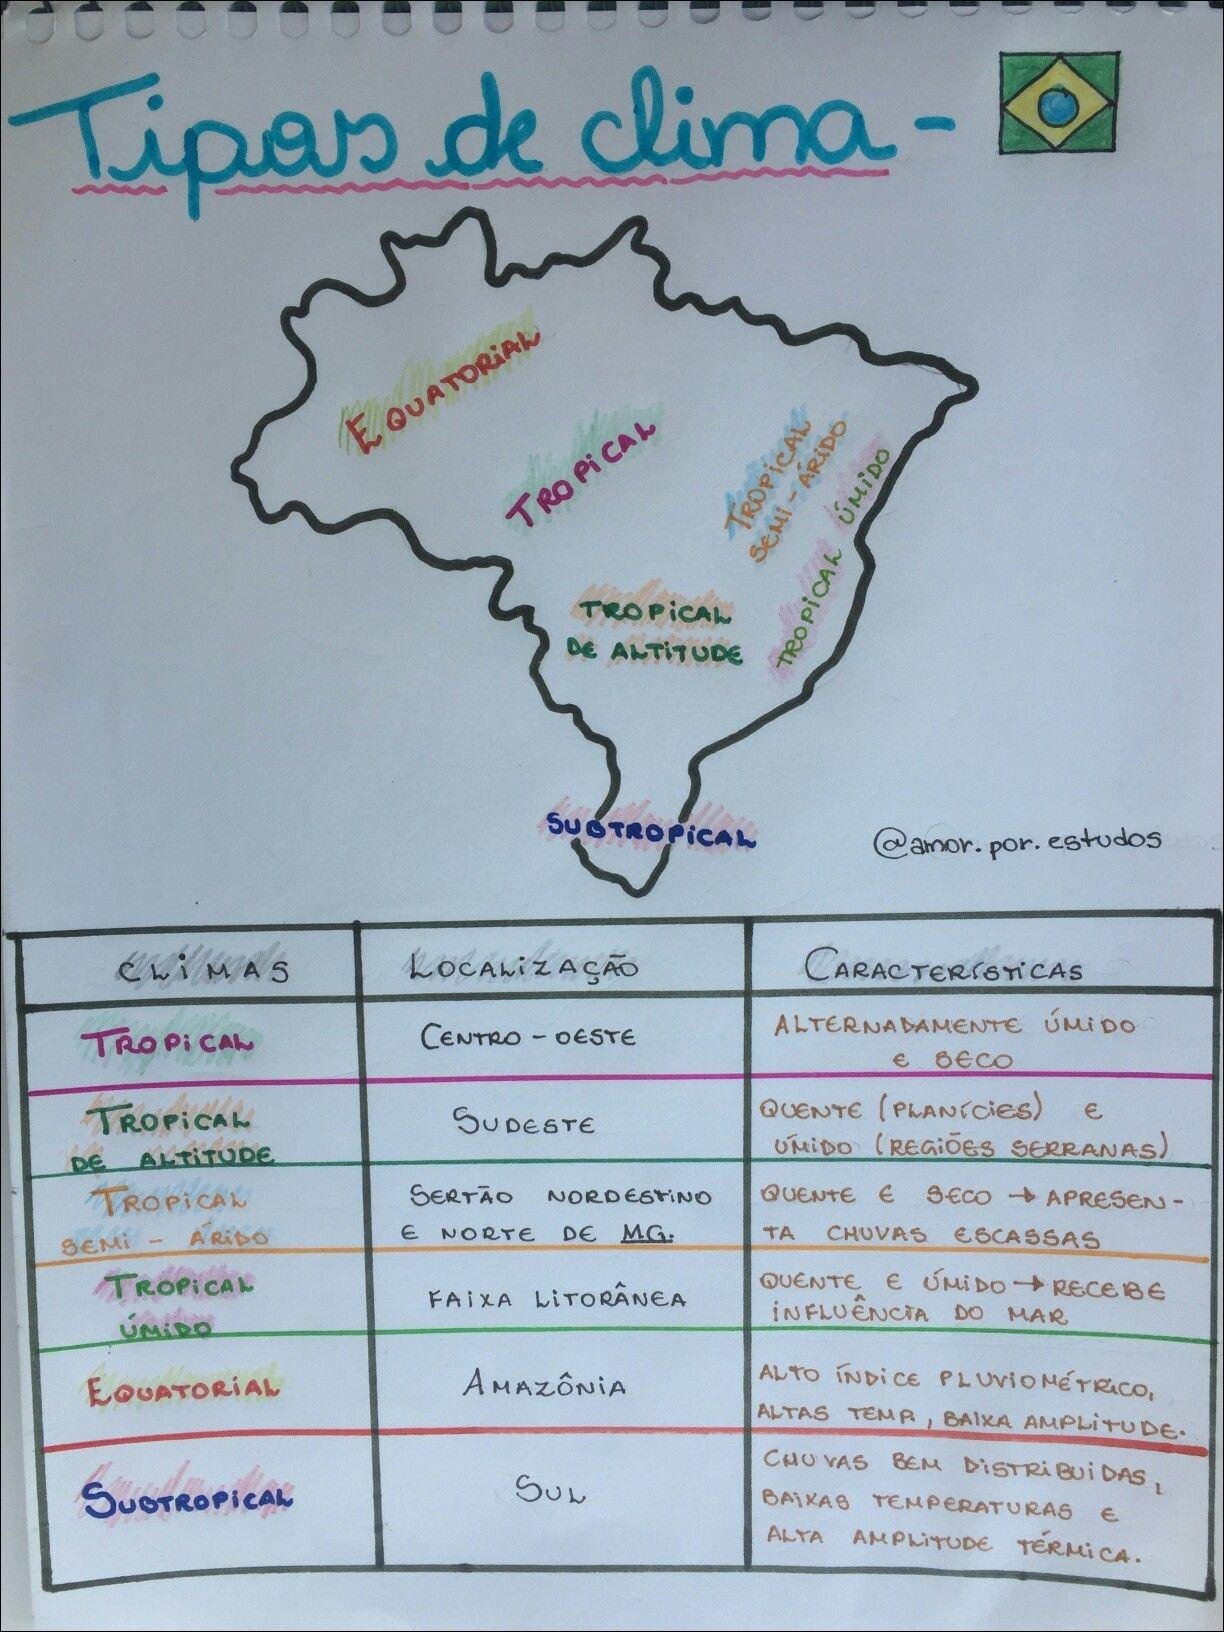 Tipos de clima -
EQUATORIAL
TROPICAL
TROPICAL
SEMI - ÁRIDO
TROPICAL ÚMIDO
TROPICAL
DE ALTITUDE
SUBTROPICAL
@amor.por.estudos
CLIMAS
LOCALIZAÇÃO
CARACTERÍSTICAS
TROPICAL
CENTRO - OESTE
ALTERNADAMENTE ÚMIDO
E SECO
TROPICAL
DE ALTITUDE
SUDESTE
QUENTE (PLANÍCIES) E
ÚMIDO (REGIÕES SERRANAS)
TROPICAL
SEMI - ÁRIDO
SERTÃO NORDESTINO
E NORTE DE MG.
QUENTE E SECO → APRESEN-
TA CHUVAS ESCASSAS
TROPICAL
ÚMIDO
FAIXA LITORÂNEA
QUENTE E ÚMIDO → RECEBE
INFLUÊNCIA DO MAR
EQUATORIAL
AMAZÔNIA
ALTO ÍNDICE PLUVIOMÉTRICO,
ALTAS TEMP, BAIXA AMPLITUDE.
SUBTROPICAL
SUL
CHUVAS BEM DISTRIBUIDAS,
BAIXAS TEMPERATURAS E
ALTA AMPLITUDE TÉRMICA.